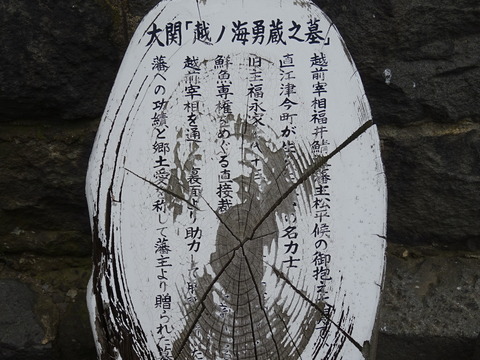 大関「越ノ海勇蔵之墓」
越前宰相福井鯖江藩主松平候の御抱え
直江津今町が生 の名力士
旧主福永家 八十三
鮮魚専権をめぐる直接裁
越前宰相を通 裏面より助力して
藩への功績と郷土愛を称して藩主より贈られた